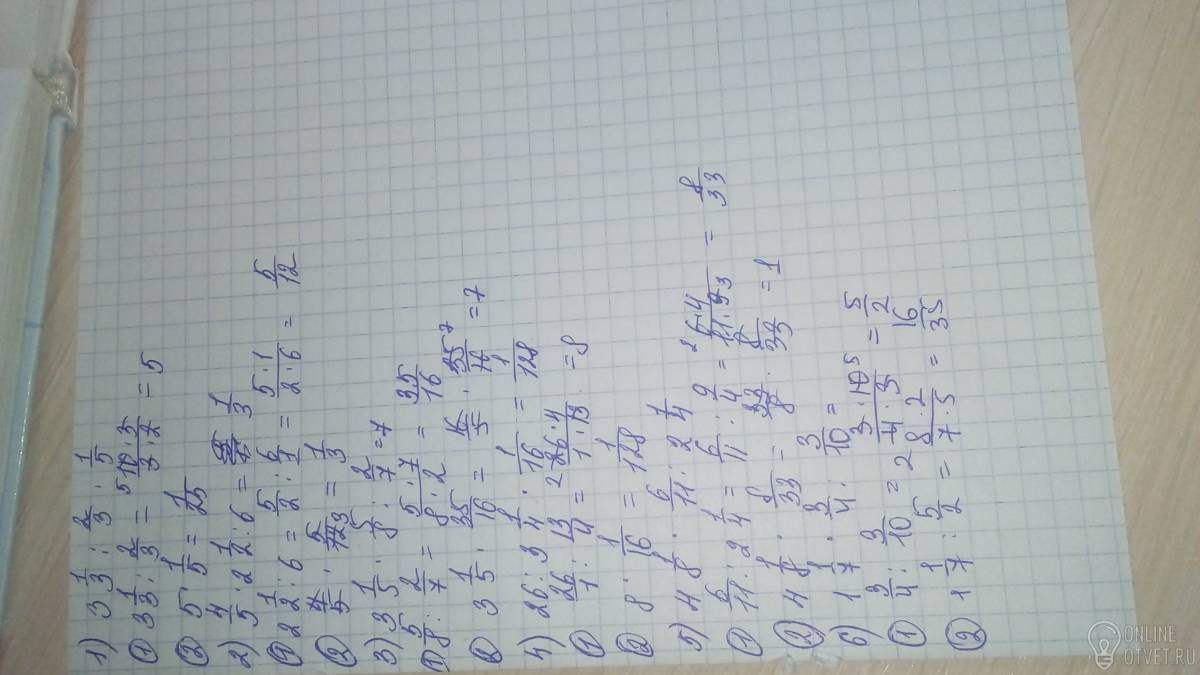 1) 3 1/3 : 2/3 · 1/5
① 3 1/3 : 2/3 = 10·3/3·2 = 5
② 5 · 1/5 = 1/25
2) 4/5 · 2 1/2 : 6 = 1/3
① 2 1/2 : 6 = 5/2 : 6/1 = 5·1/2·6 = 5/12
② 4/5 · 5/12 = 1/3
3) 3 1/5 · 5/8 : 2/7 = 7
① 5/8 : 2/7 = 5·7/8·2 = 35/16
② 3 1/5 · 35/16 = 16/5 · 35/16 = 7
4) 26 : 3 1/4 · 1/16 = 1/128
① 26/1 : 13/4 = 26·4/1·13 = 8
② 8 · 1/16 = 1/128
5) 4 1/8 · 6/11 : 2 1/4
① 6/11 : 2 1/4 = 6/11 · 9/4 = 6·4/11·9 = 8/33
② 4 1/8 · 8/33 = 33/8 · 8/33 = 1
6) 1 1/7 · 3/4 : 3/10 =
① 3/4 : 3/10 = 3·10/4·3 = 5/2
② 1 1/7 : 5/2 = 8·2/7·5 = 16/35
ONLINE
OTVET.RU